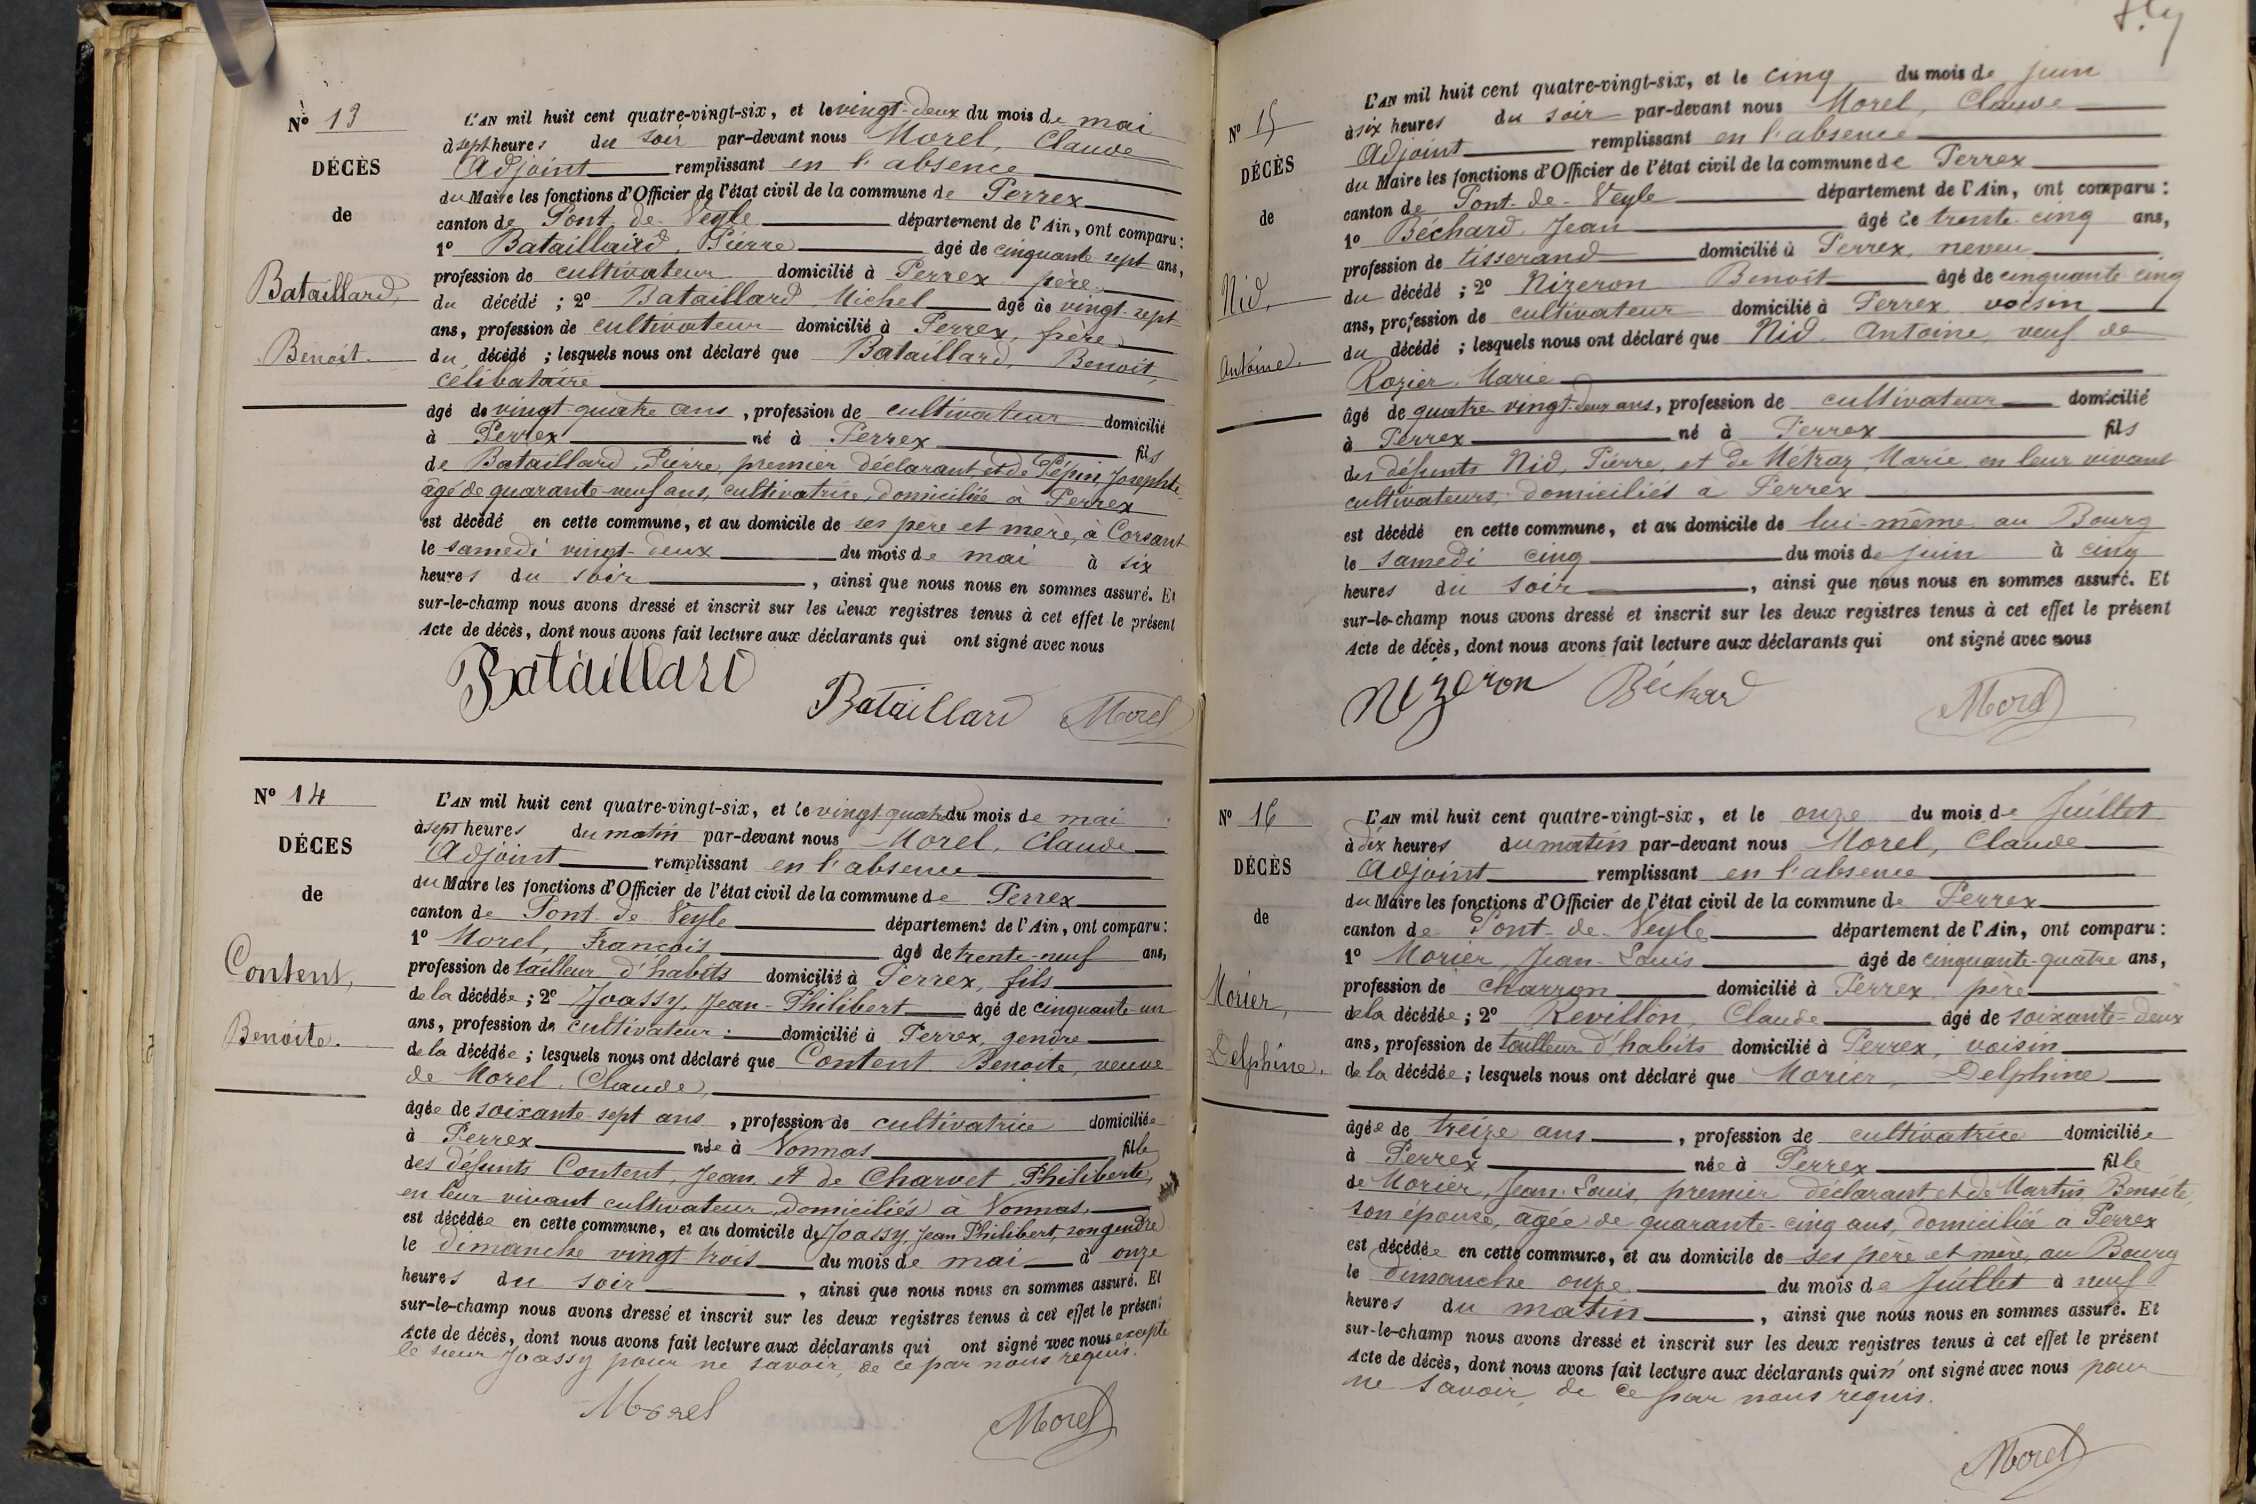 Nº 13
DÉCÈS
de
Bataillard,
Benoit.
L'AN mil huit cent quatre-vingt-six, et le vingt-deux du mois de mai
à sept heures du soir par-devant nous Morel, Claude
Adjoint remplissant en l'absence
du Maire les fonctions d'Officier de l'état civil de la commune de Perrex
canton de Pont-de-Veyle département de l'Ain, ont comparu :
1º Bataillard, Pierre âgé de cinquante sept ans,
profession de cultivateur domicilié à Perrex père
du décédé ; 2º Bataillard Michel âgé de vingt-sept
ans, profession de cultivateur domicilié à Perrex, frère
du décédé ; lesquels nous ont déclaré que Bataillard, Benoit,
célibataire
âgé de vingt-quatre ans, profession de cultivateur domicilié
à Perrex né à Perrex fils
de Bataillard, Pierre, premier déclarant et de Pépin Josephte
âgé de quarante-neuf ans, cultivatrice, domiciliée à Perrex
est décédé en cette commune, et au domicile de ses père et mère, à Corsant
le samedi vingt-deux du mois de mai à six
heures du soir, ainsi que nous nous en sommes assuré. Et
sur-le-champ nous avons dressé et inscrit sur les deux registres tenus à cet effet le présent
Acte de décès, dont nous avons fait lecture aux déclarants qui ont signé avec nous
Bataillard Bataillard Morel
Nº 14
DÉCES
de
Content,
Benoite.
L'AN mil huit cent quatre-vingt-six, et le vingt quatre du mois de mai
à sept heures du matin par-devant nous Morel, Claude
Adjoint remplissant en l'absence
du Maire les fonctions d'Officier de l'état civil de la commune de Perrex
canton de Pont-de-Veyle département de l'Ain, ont comparu :
1º Morel, François âgé de trente-neuf ans,
profession de tailleur d'habits domicilié à Perrex, fils
de la décédée ; 2º Joassy, Jean-Philibert âgé de cinquante un
ans, profession de cultivateur domicilié à Perrex, gendre
de la décédée ; lesquels nous ont déclaré que Content Benoite, veuve
de Morel, Claude,
âgée de soixante-sept ans, profession de cultivatrice domiciliée
à Perrex née à Vonnas fille
des défunts Content, Jean et de Charvet Philiberte,
en leur vivant cultivateur domiciliés à Vonnas
est décédée en cette commune, et au domicile de Joassy, Jean Philibert, son gendre
le dimanche vingt trois du mois de mai à onze
heures du soir, ainsi que nous nous en sommes assuré. Et
sur-le-champ nous avons dressé et inscrit sur les deux registres tenus à cet effet le présent
Acte de décès, dont nous avons fait lecture aux déclarants qui ont signé avec nous excepté
le sieur Joassy pour ne savoir, de ce par nous requis.
Morel Morel
Nº 15
DÉCÈS
de
Nid,
Antoine.
L'AN mil huit cent quatre-vingt-six, et le cinq du mois de juin
à six heures du soir par-devant nous Morel, Claude
Adjoint remplissant en l'absence
du Maire les fonctions d'Officier de l'état civil de la commune de Perrex
canton de Pont-de-Veyle département de l'Ain, ont comparu :
1º Béchard, Jean âgé de trente-cinq ans,
profession de tisserand domicilié à Perrex, neveu
du décédé ; 2º Nizeron Benoit âgé de cinquante cinq
ans, profession de cultivateur domicilié à Perrex voisin
du décédé ; lesquels nous ont déclaré que Nid Antoine, veuf de
Rozier, Marie
âgé de quatre-vingt-deux ans, profession de cultivateur domicilié
à Perrex né à Perrex fils
des défunts Nid, Pierre, et de Métraz, Marie en leur vivant
cultivateurs domiciliés à Perrex
est décédé en cette commune, et au domicile de lui-même au Bourg
le samedi cinq du mois de juin à cinq
heures du soir, ainsi que nous nous en sommes assuré. Et
sur-le-champ nous avons dressé et inscrit sur les deux registres tenus à cet effet le présent
Acte de décès, dont nous avons fait lecture aux déclarants qui ont signé avec nous
Nizeron Béchard Morel
Nº 16
DÉCÈS
de
Morier,
Delphine.
L'AN mil huit cent quatre-vingt-six, et le onze du mois de Juillet
à dix heures du matin par-devant nous Morel, Claude
Adjoint remplissant en l'absence
du Maire les fonctions d'Officier de l'état civil de la commune de Perrex
canton de Pont-de-Veyle département de l'Ain, ont comparu :
1º Morier, Jean-Louis âgé de cinquante-quatre ans,
profession de charron domicilié à Perrex père
de la décédée ; 2º Revillon, Claude âgé de soixante-deux
ans, profession de tailleur d'habits domicilié à Perrex, voisin
de la décédée ; lesquels nous ont déclaré que Morier, Delphine
âgée de treize ans, profession de cultivatrice domiciliée
à Perrex née à Perrex fille
de Morier, Jean-Louis, premier déclarant, et de Martin Benoite,
son épouse, âgée de quarante-cinq ans, domiciliée à Perrex
est décédée en cette commune, et au domicile de ses père et mère, au Bourg
le dimanche onze du mois de Juillet à neuf
heures du matin, ainsi que nous nous en sommes assuré. Et
sur-le-champ nous avons dressé et inscrit sur les deux registres tenus à cet effet le présent
Acte de décès, dont nous avons fait lecture aux déclarants qui n'ont signé avec nous pour
ne savoir, de ce par nous requis.
Morel